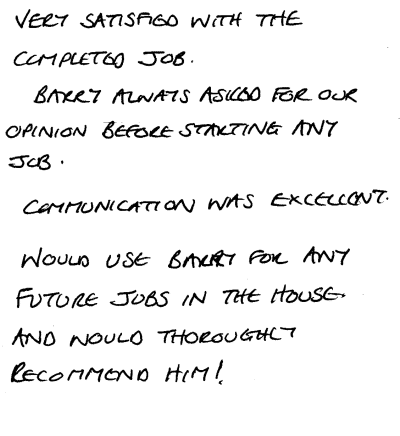 VERY SATISFIED WITH THE
COMPLETED JOB.
BARRY ALWAYS ASKED FOR OUR
OPINION BEFORE STARTING ANY
JOB.
COMMUNICATION WAS EXCELLENT.
WOULD USE BARRY FOR ANY
FUTURE JOBS IN THE HOUSE.
AND WOULD THOROUGHLY
RECOMMEND HIM!